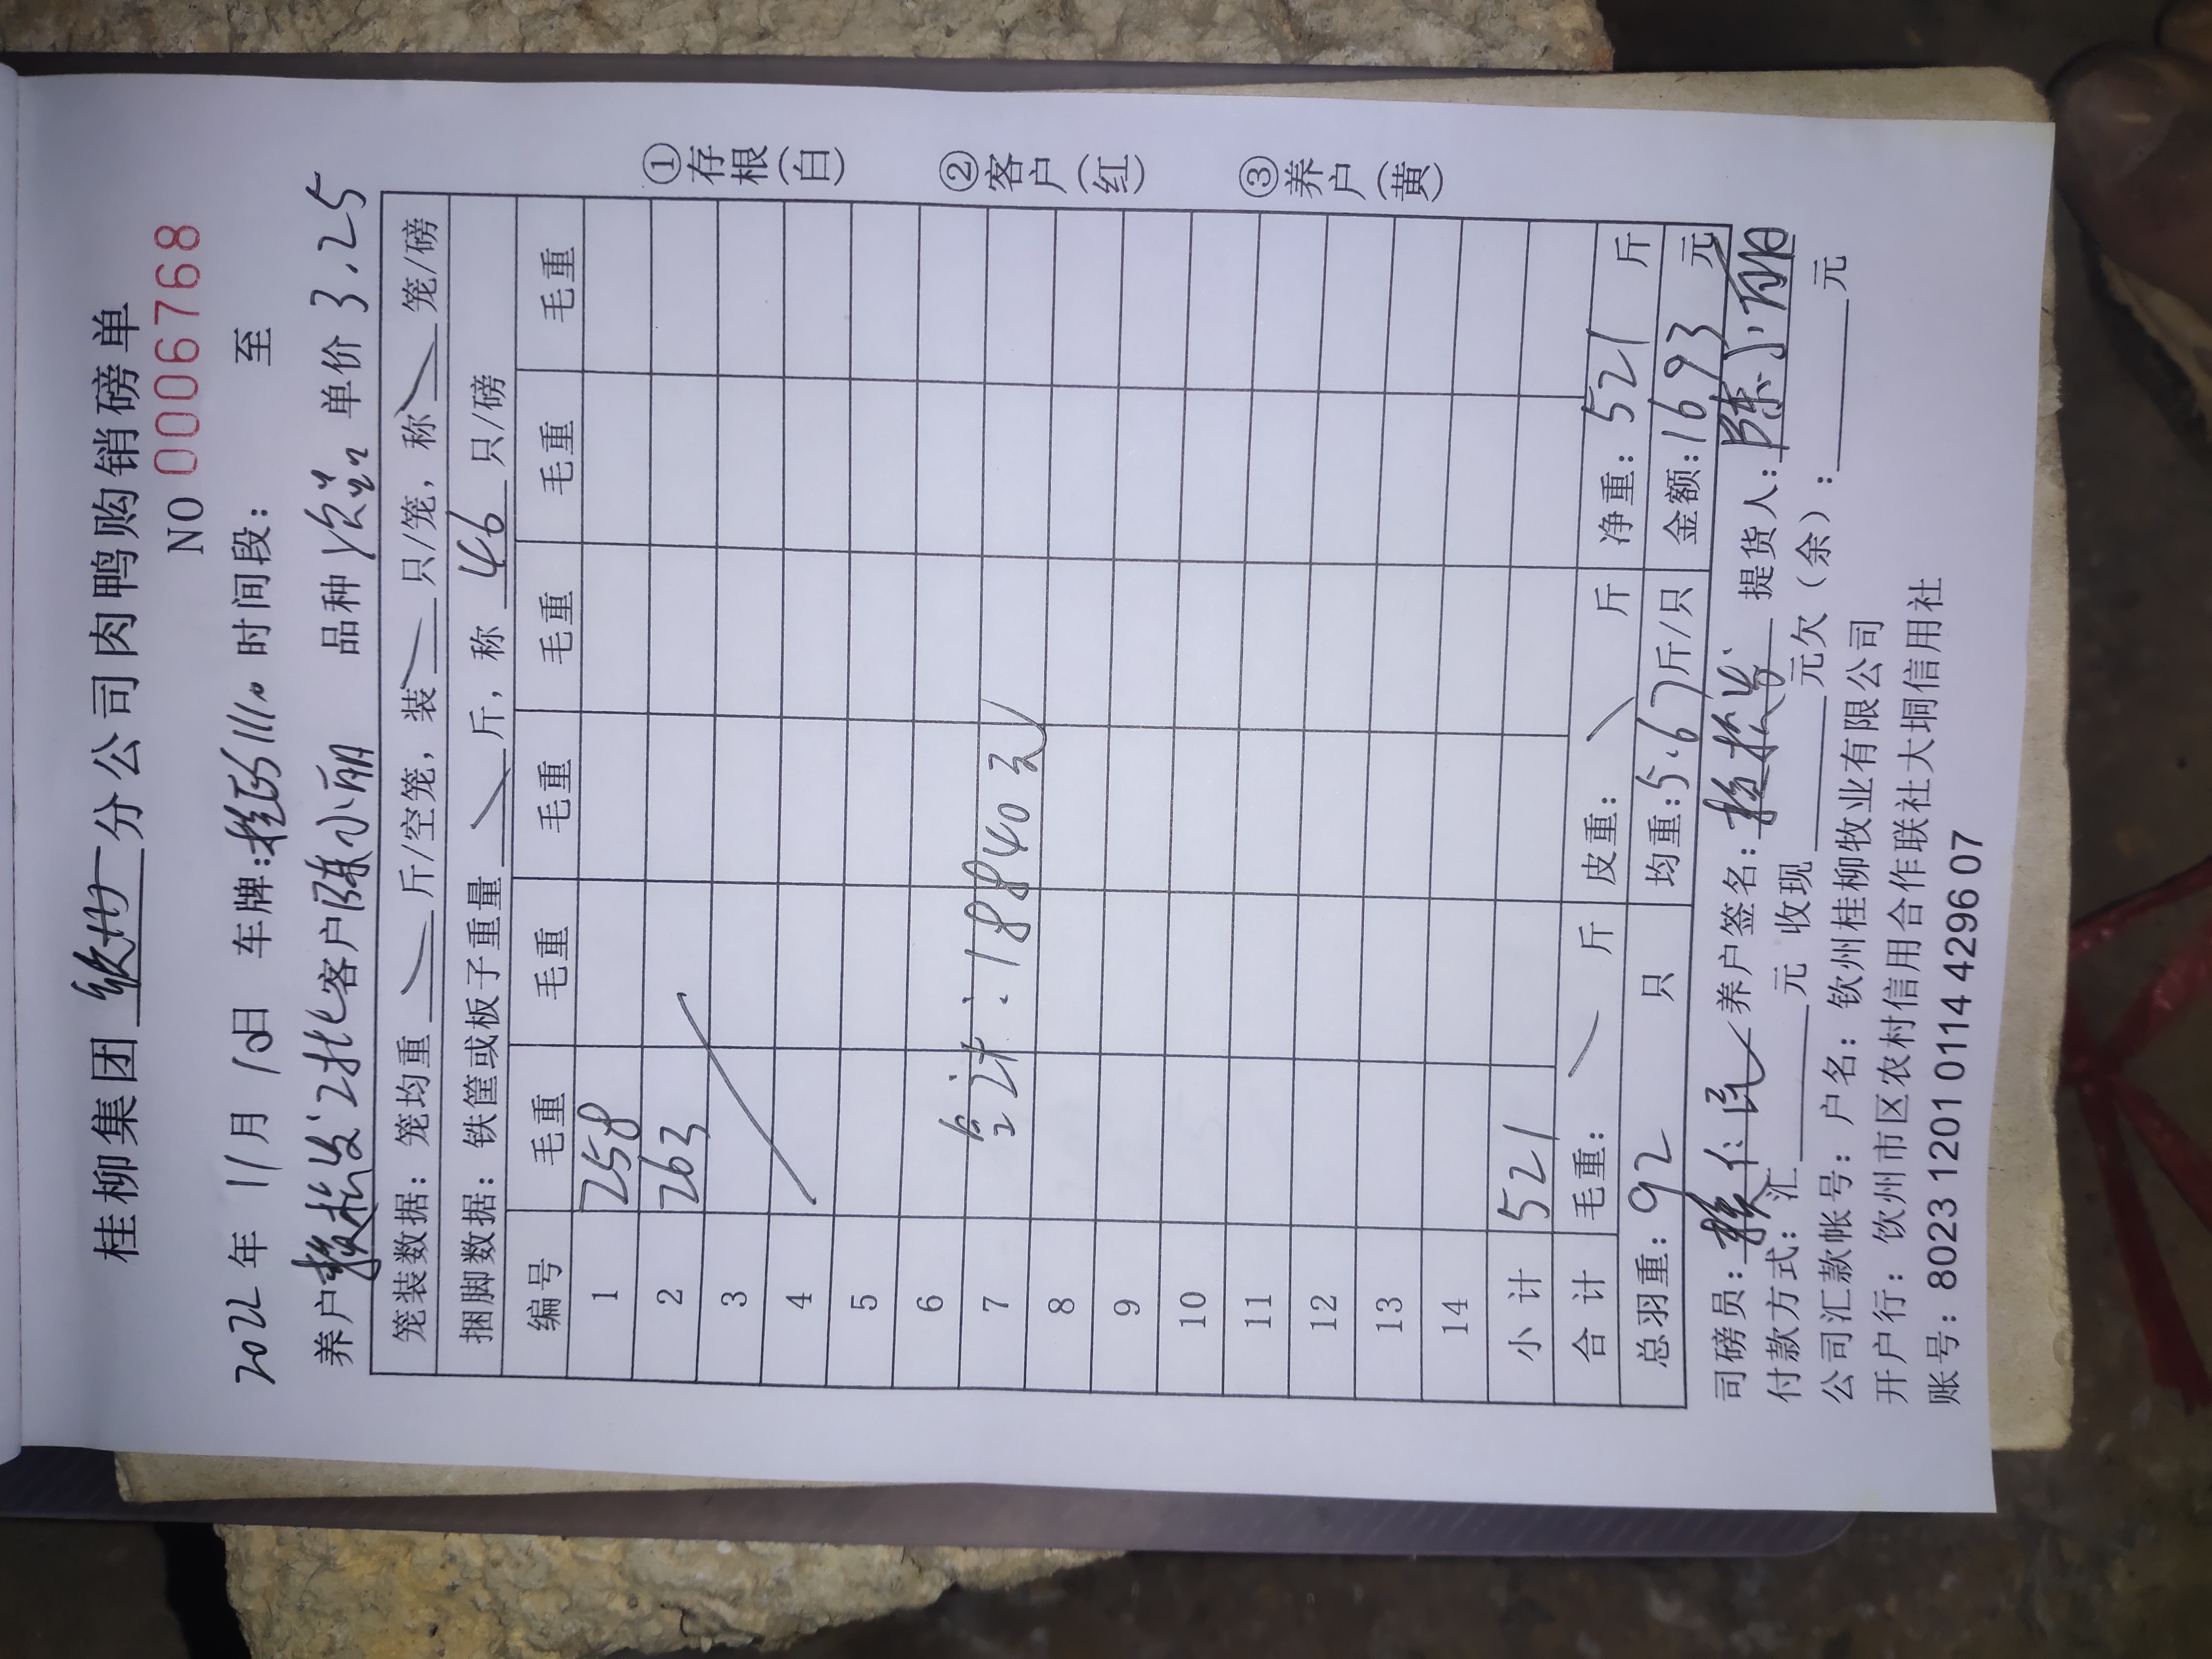 桂柳集团 钦州 分公司肉鸭购销磅单
NO 0006768
2022年 11月 10日 车牌: 时间段: 至
养户 赖松发2批 客户 陈小丽 品种 单价 3.25
笼装数据: 笼均重 斤/空笼, 装 只/笼, 称 笼/磅
捆脚数据: 铁筐或板子重量 斤, 称 46 只/磅
编号 毛重 毛重 毛重 毛重 毛重 毛重
1 258
2 263
3
4
5
6
7 合计: 18840元
8
9
10
11
12
13
14
小计 521
合计 毛重: 斤 皮重: 斤 净重: 521 斤
总羽重: 92 只 均重: 5.67 斤/只 金额: 1693 元
司磅员: 赖仁民 养户签名: 赖松发 提货人: 陈小丽
付款方式: 汇 元 收现 元欠(余): 元
公司汇款帐号: 户名: 钦州桂柳牧业有限公司
开户行: 钦州市区农村信用合作联社大垌信用社
账号: 8023 1201 0114 4296 07
①存根(白)
②客户(红)
③养户(黄)